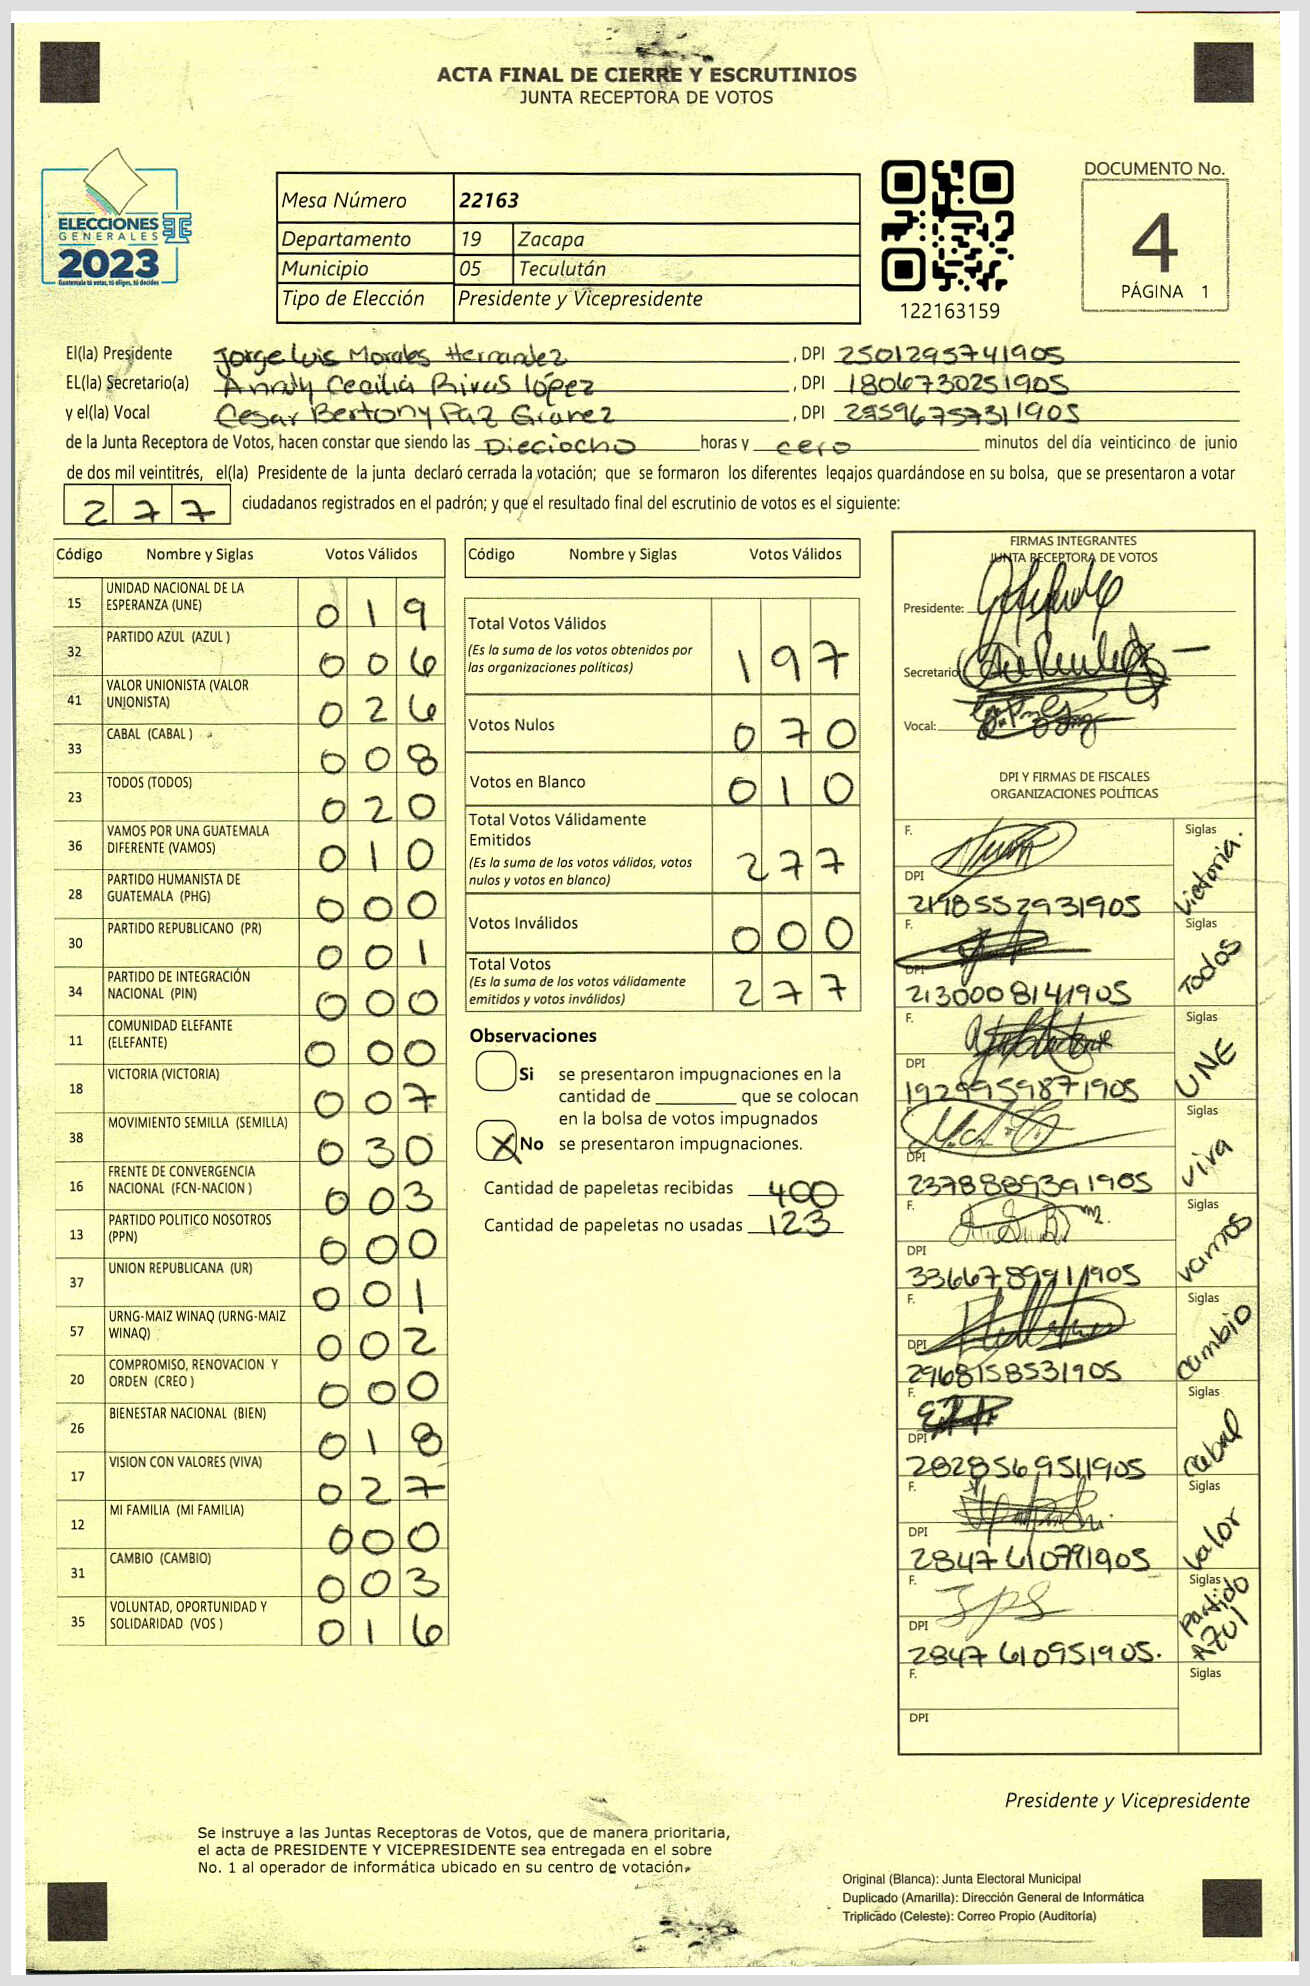 ACTA FINAL DE CIERRE Y ESCRUTINIOS
JUNTA RECEPTORA DE VOTOS
ELECCIONES
GENERALES
2023
Guatemala tú votas, tú eliges, tú decides
Mesa Número 22163
Departamento 19 Zacapa
Municipio 05 Teculután
Tipo de Elección Presidente y Vicepresidente
122163159
DOCUMENTO No.
4
PÁGINA 1
El(la) Presidente Jorge Luis Morales Hernandez, DPI 2501295741905
EL(la) Secretario(a) Cecilia Rivas López, DPI 1806730251905
y el(la) Vocal Cesar Bertony Paz, DPI
de la Junta Receptora de Votos, hacen constar que siendo las Dieciocho horas y cero minutos del día veinticinco de junio
de dos mil veintitrés, el(la) Presidente de la junta declaró cerrada la votación; que se formaron los diferentes legajos quardándose en su bolsa, que se presentaron a votar
277 ciudadanos registrados en el padrón; y que el resultado final del escrutinio de votos es el siguiente:
Código Nombre y Siglas Votos Válidos
15 UNIDAD NACIONAL DE LA ESPERANZA (UNE) 019
32 PARTIDO AZUL (AZUL ) 006
41 VALOR UNIONISTA (VALOR UNIONISTA) 026
33 CABAL (CABAL ) 008
23 TODOS (TODOS) 020
36 VAMOS POR UNA GUATEMALA DIFERENTE (VAMOS) 010
28 PARTIDO HUMANISTA DE GUATEMALA (PHG) 000
30 PARTIDO REPUBLICANO (PR) 001
34 PARTIDO DE INTEGRACIÓN NACIONAL (PIN) 000
11 COMUNIDAD ELEFANTE (ELEFANTE) 000
18 VICTORIA (VICTORIA) 007
38 MOVIMIENTO SEMILLA (SEMILLA) 030
16 FRENTE DE CONVERGENCIA NACIONAL (FCN-NACION ) 003
13 PARTIDO POLITICO NOSOTROS (PPN) 000
37 UNION REPUBLICANA (UR) 001
57 URNG-MAIZ WINAQ (URNG-MAIZ WINAQ) 002
20 COMPROMISO, RENOVACION Y ORDEN (CREO ) 000
26 BIENESTAR NACIONAL (BIEN) 018
17 VISION CON VALORES (VIVA) 027
12 MI FAMILIA (MI FAMILIA) 000
31 CAMBIO (CAMBIO) 003
35 VOLUNTAD, OPORTUNIDAD Y SOLIDARIDAD (VOS ) 016
Código Nombre y Siglas Votos Válidos
Total Votos Válidos 197
(Es la suma de los votos obtenidos por
las organizaciones políticas)
Votos Nulos 070
Votos en Blanco 010
Total Votos Válidamente
Emitidos 277
(Es la suma de los votos válidos, votos
nulos y votos en blanco)
Votos Inválidos 000
Total Votos 277
(Es la suma de los votos válidamente
emitidos y votos inválidos)
Observaciones
Si se presentaron impugnaciones en la
cantidad de ________ que se colocan
en la bolsa de votos impugnados
X No se presentaron impugnaciones.
Cantidad de papeletas recibidas 400
Cantidad de papeletas no usadas 123
FIRMAS INTEGRANTES
JUNTA RECEPTORA DE VOTOS
Presidente:
Secretario
Vocal:
DPI Y FIRMAS DE FISCALES
ORGANIZACIONES POLÍTICAS
F. Siglas Victoria.
DPI 2198552931905
F. Siglas Todos
DPI 2130008141905
F. Siglas UNE
DPI 1929959871905
Siglas viva
DPI 2378889391905
F. Siglas vamos
DPI 3366789911905
F. Siglas cambio
DPI 2968158531905
F. Siglas cabal
DPI 2828569511905
F. Siglas valor
DPI 2847610791905
F. Siglas Partido AZUl
DPI 2847610951905.
F. Siglas
DPI
Presidente y Vicepresidente
Se instruye a las Juntas Receptoras de Votos, que de manera prioritaria,
el acta de PRESIDENTE Y VICEPRESIDENTE sea entregada en el sobre
No. 1 al operador de informática ubicado en su centro de votación.
Original (Blanca): Junta Electoral Municipal
Duplicado (Amarilla): Dirección General de Informática
Triplicado (Celeste): Correo Propio (Auditoría)